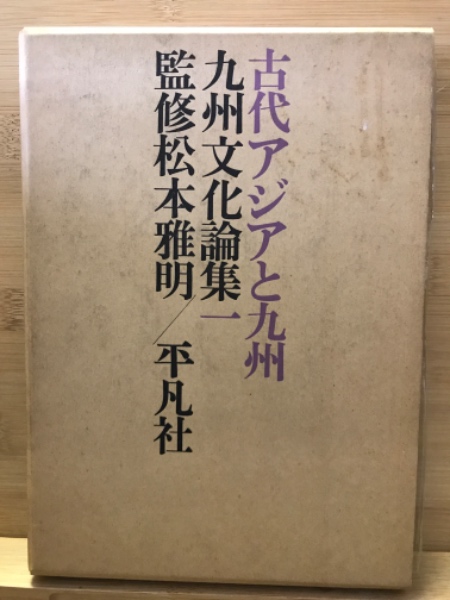 古代アジアと九州
九州文化論集一
監修松本雅明／平凡社